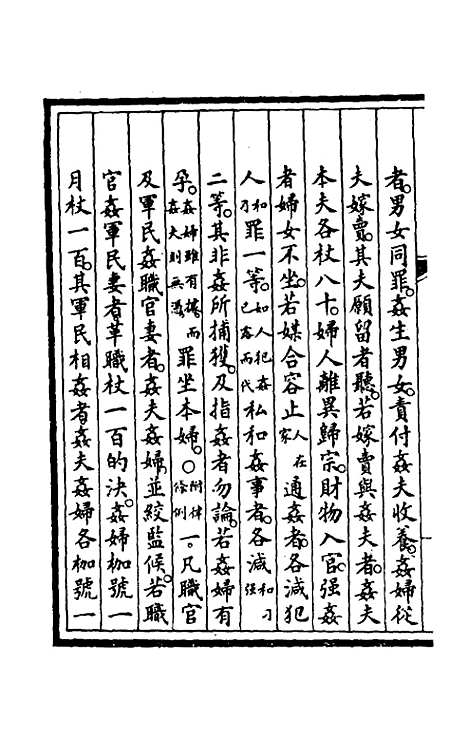 者。男女同罪。姦生男女。責付姦夫收養。姦婦從
夫嫁賣。其夫願留者聽。若嫁賣與姦夫者。姦夫
本夫各杖八十。婦人離異歸宗。財物入官。强姦
者婦女不坐。若媒合容止人在家通姦者。各減犯
人和刁罪一等。如人犯姦已露而代私和姦事者。各減和刁强
二等。其非姦所捕獲。及指姦者勿論。若姦婦有
孕。姦婦雖有據而姦夫則無憑罪坐本婦。○附律條例一。凡職官
及軍民姦職官妻者。姦夫姦婦並絞監候。若職
官姦軍民妻者。革職杖一百的決。姦婦枷號一
月杖一百。其軍民相姦者。姦夫姦婦各枷號一